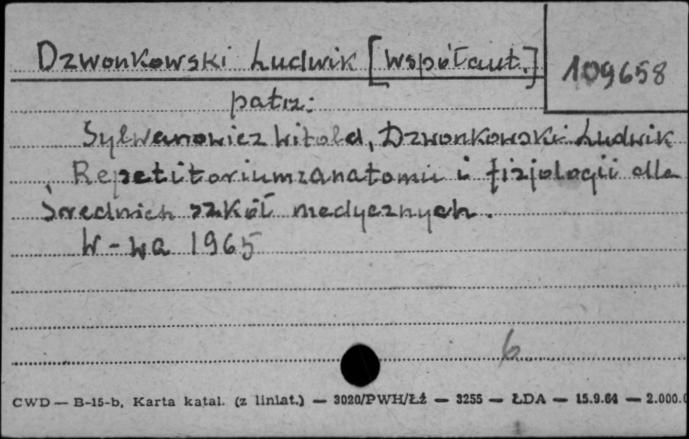 Dzwonkowski Ludwik [współaut.]
109658
patrz:
Sylwanowicz Witold, Dzwonkowski Ludwik
Repetitorium z anatomii i fizjologii dla
średnich szkół medycznych.
W-wa 1965
6
CWD — B-15-b, Karta katal. (z liniat.) — 3020/PWH/Łż — 3255 — ŁDA — 15.9.64 — 2.000.0